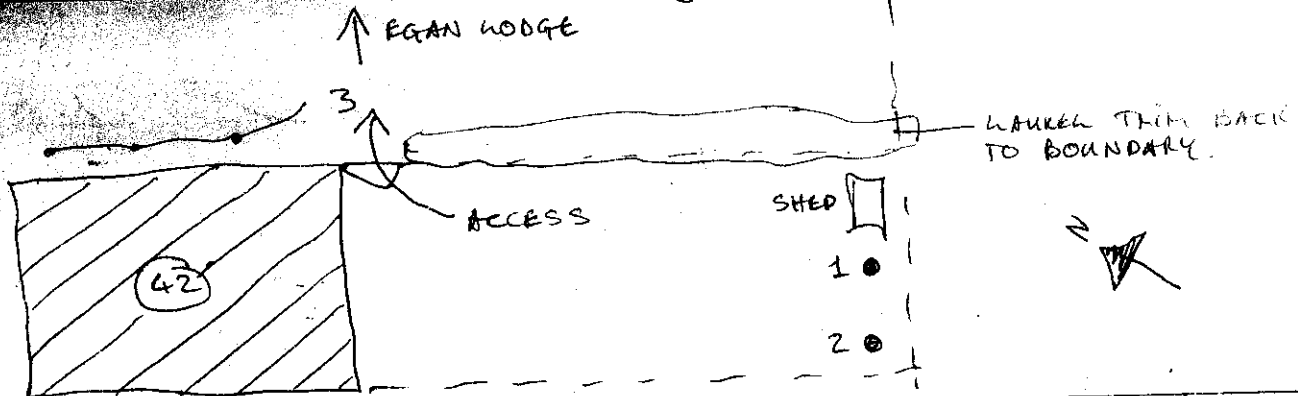 EGAN LODGE
3
LAUREL TRIM BACK
TO BOUNDARY.
ACCESS
SHED
42
1
2
N